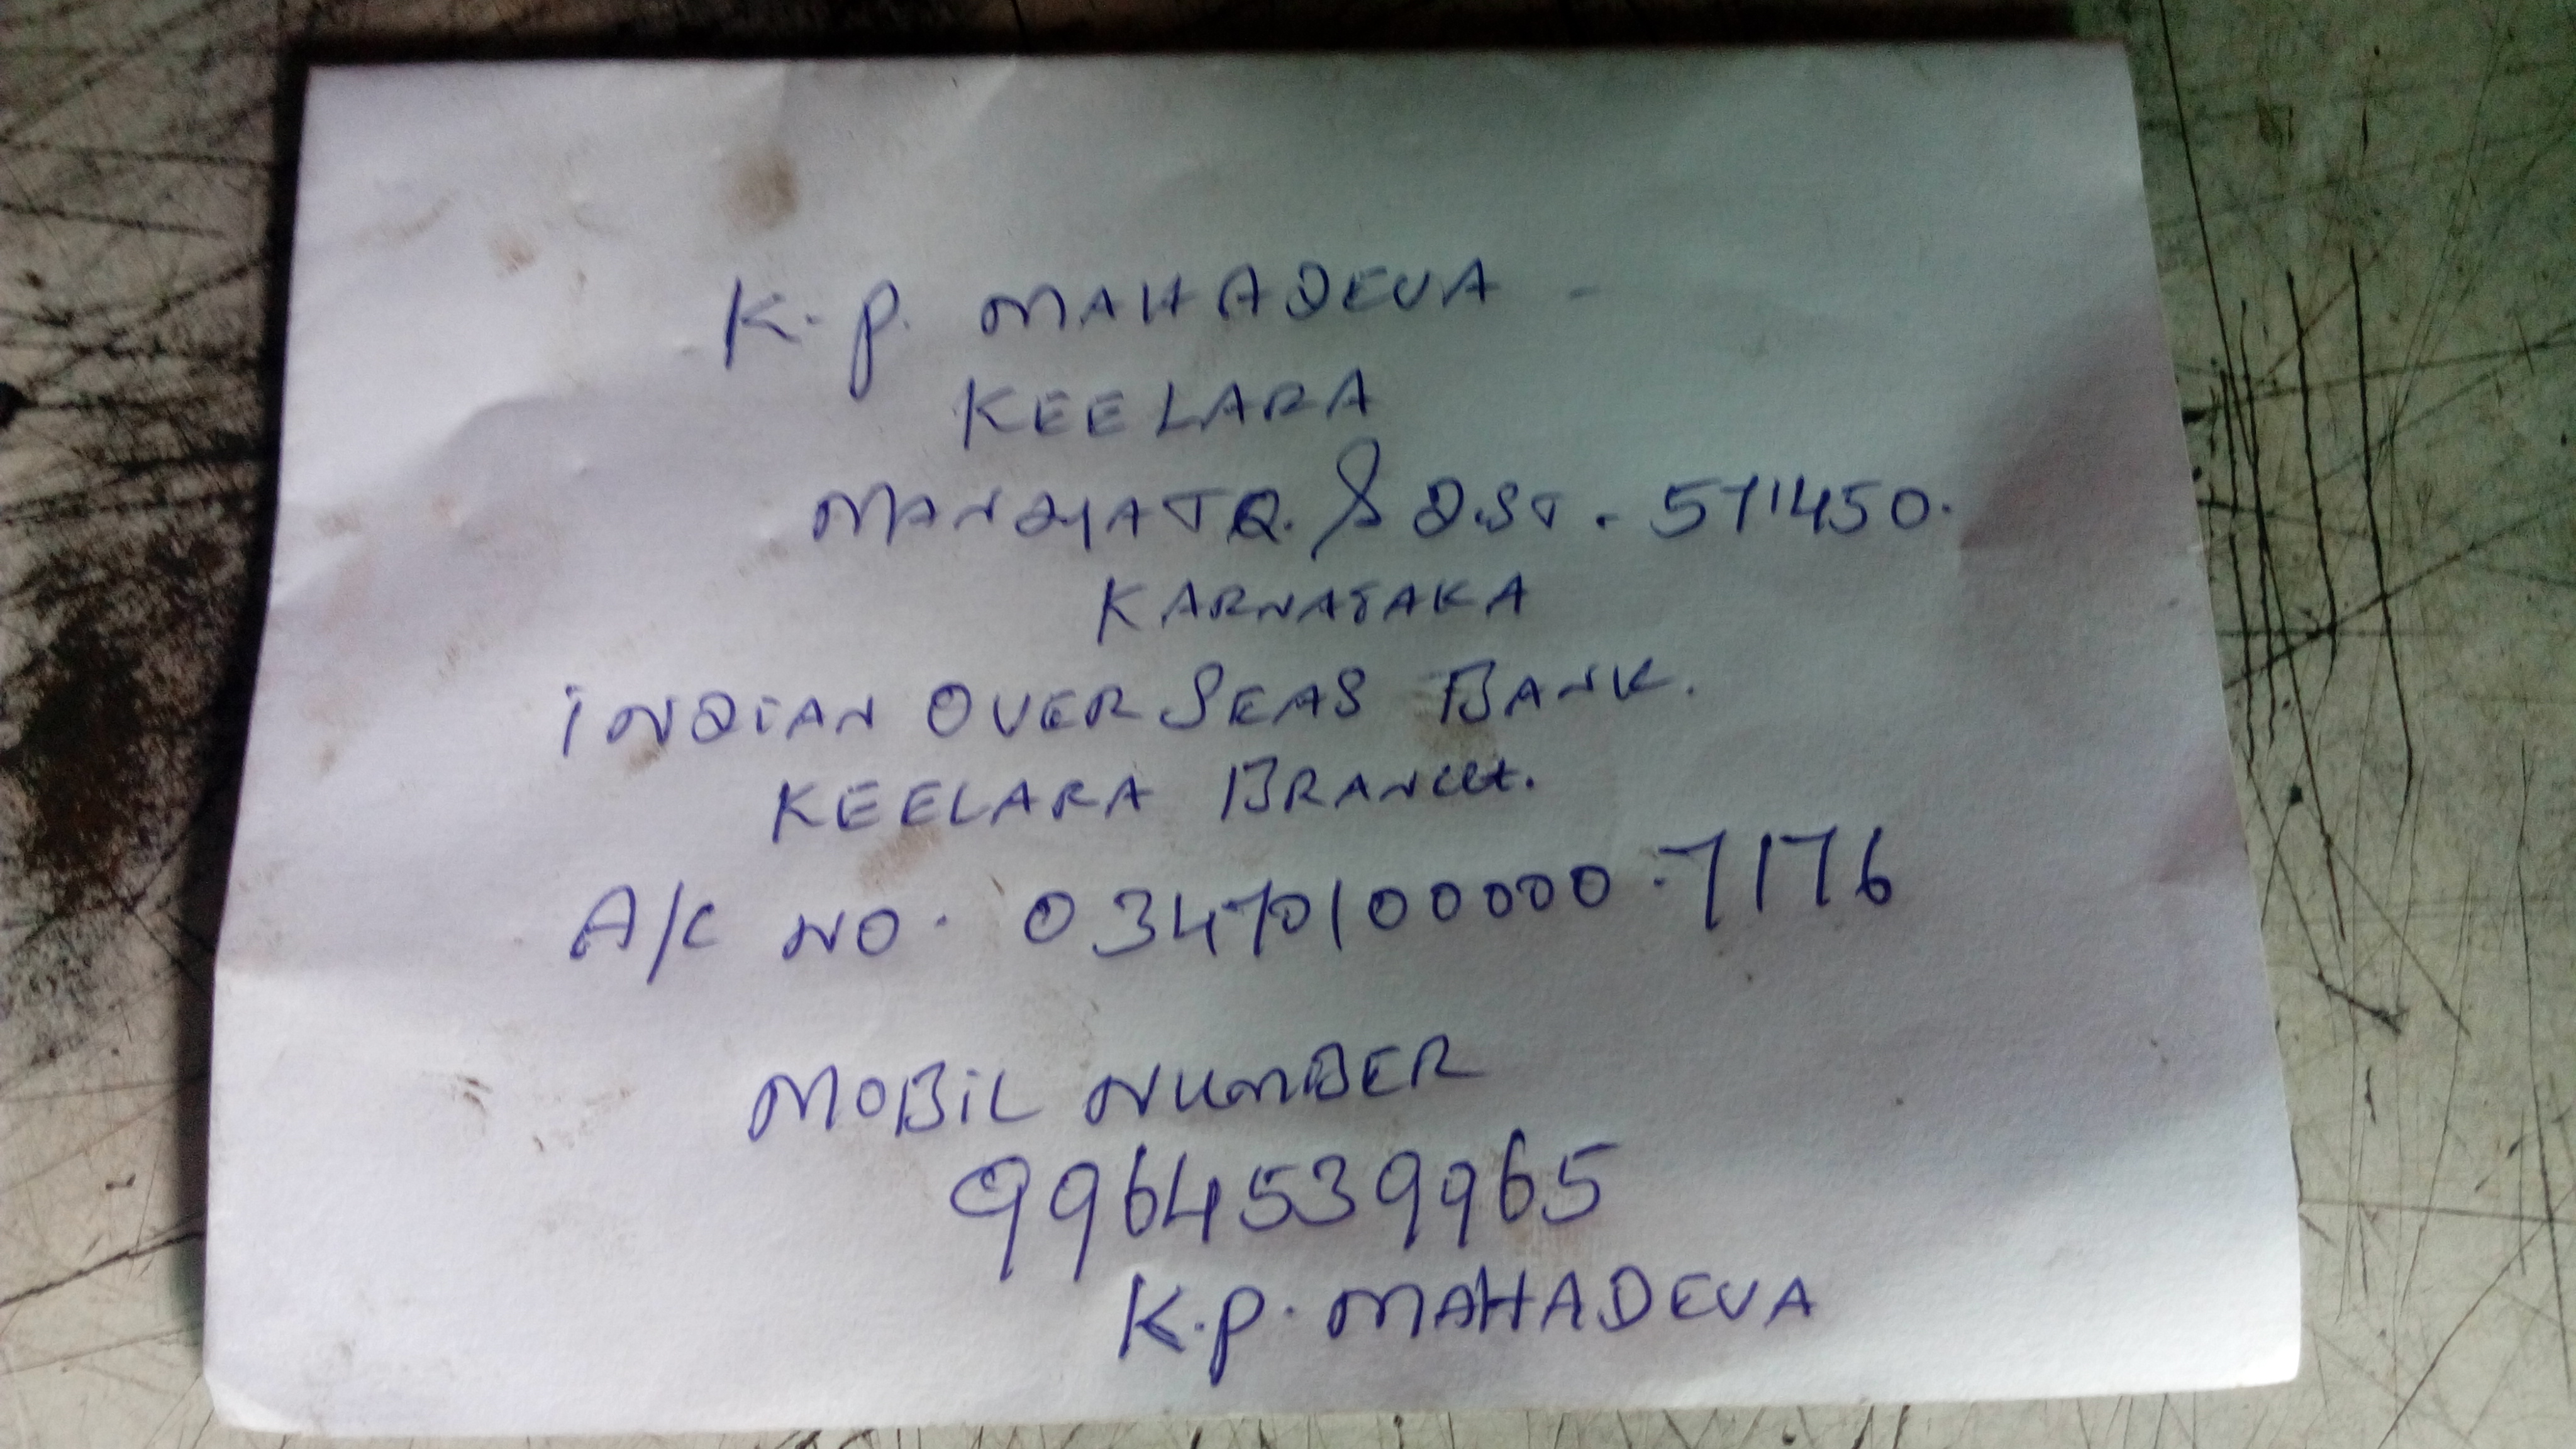 K. P. MAHADEVA -
KEELARA
MANDYA TQ. & DST. 571450.
KARNATAKA
INDIAN OVERSEAS BANK.
KEELARA BRANCH.
A/C NO. 03470100000.7176
MOBIL NUMBER
9964539965
K.P. MAHADEVA